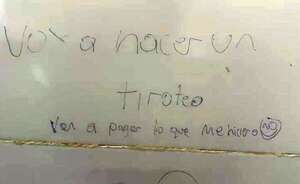 Voy a hacer un
tiroteo
Van a pagar lo que me hicieron